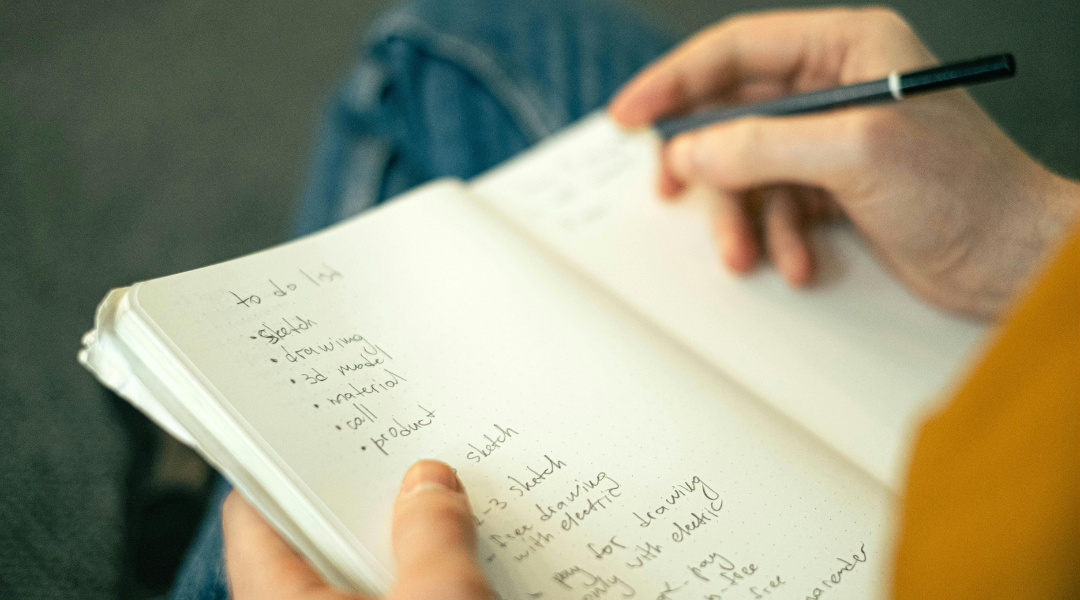 to do list
• sketch
• drawing
• 3d model
• material
• call
• product
sketch
2-3 sketch
- free drawing
with electric
pay for drawing
only with electric
pay
free
free